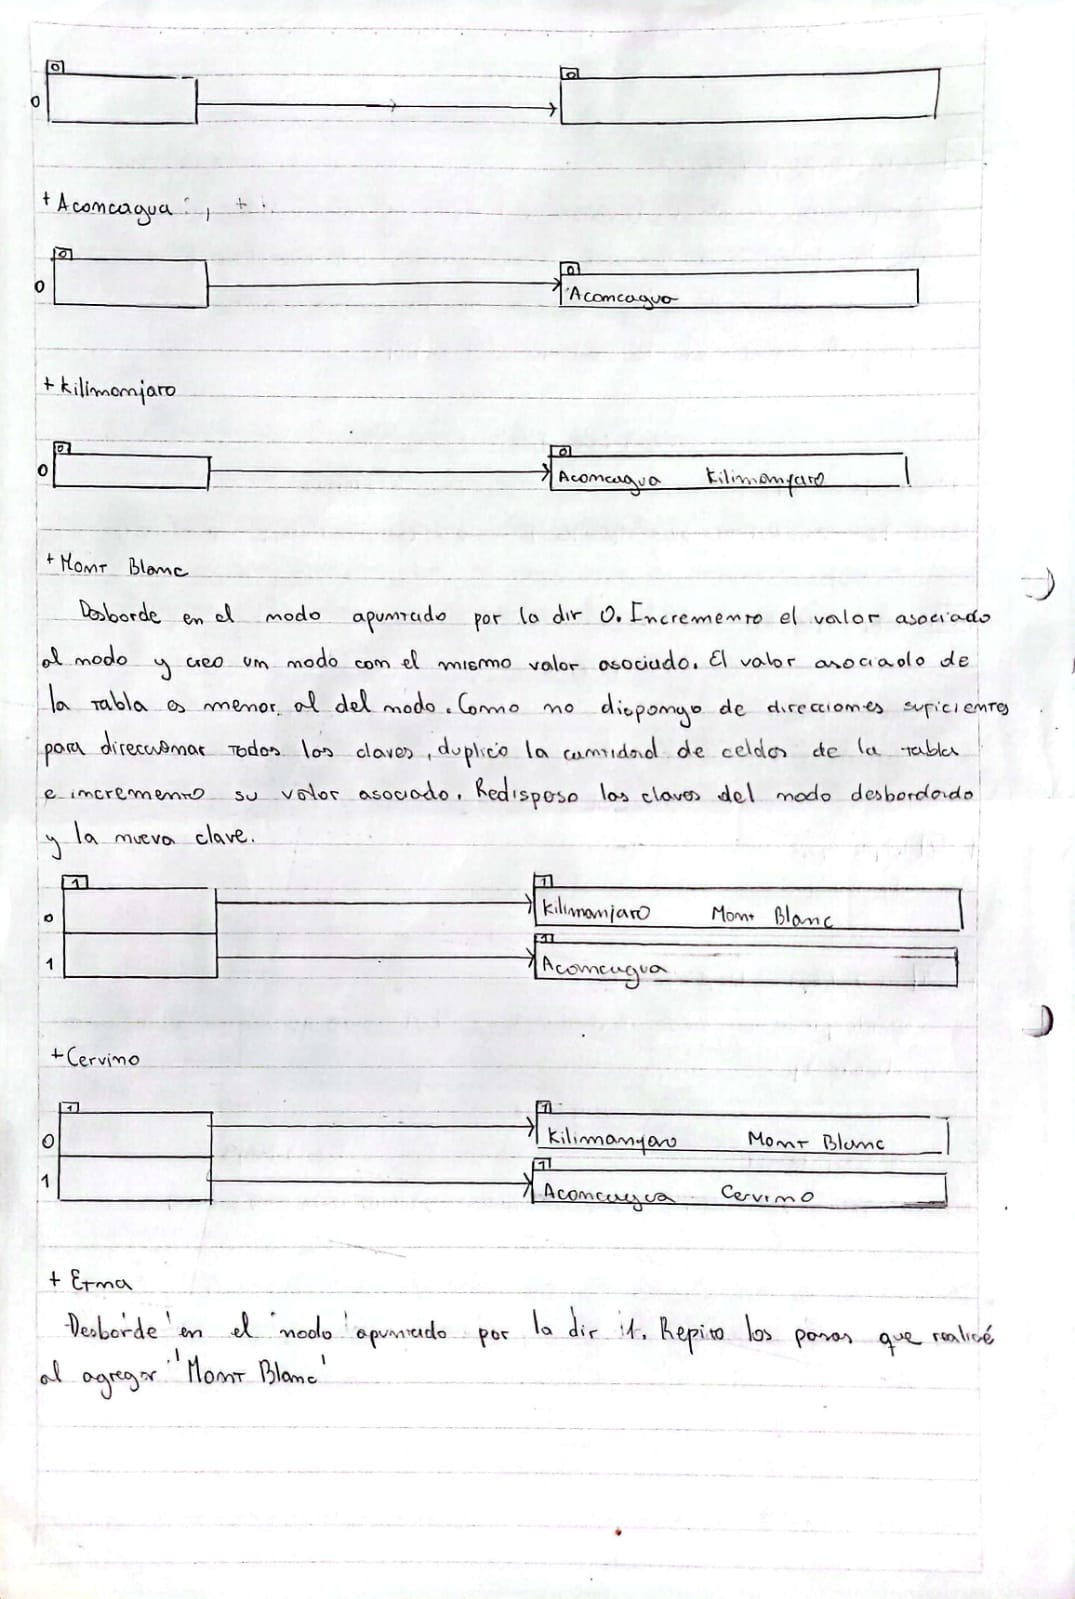 0 0
0
+Aconcagua , +
0 0
0 Aconcagua
+ Kilimanjaro
0 0
0 Aconcagua Kilimanjaro
+ Mont Blanc
Desborde en el nodo apuntado por la dir 0. Incremento el valor asociado
al nodo y creo un nodo con el mismo valor asociado. El valor asociado de
la tabla es menor al del nodo. Como no dispongo de direcciones suficientes
para direccionar todas las claves, duplico la cantidad de celdas de la tabla
e incremento su valor asociado. Redisposo las claves del nodo desbordado
y la nueva clave.
1 1
0 Kilimanjaro Mont Blanc
1
1 Aconcagua
+Cervino
1 1
0 Kilimanjaro Mont Blanc
1
1 Aconcagua Cervino
+ Etna
Desborde en el nodo apuntado por la dir 1. Repito los pasos que realicé
al agregar 'Mont Blanc'